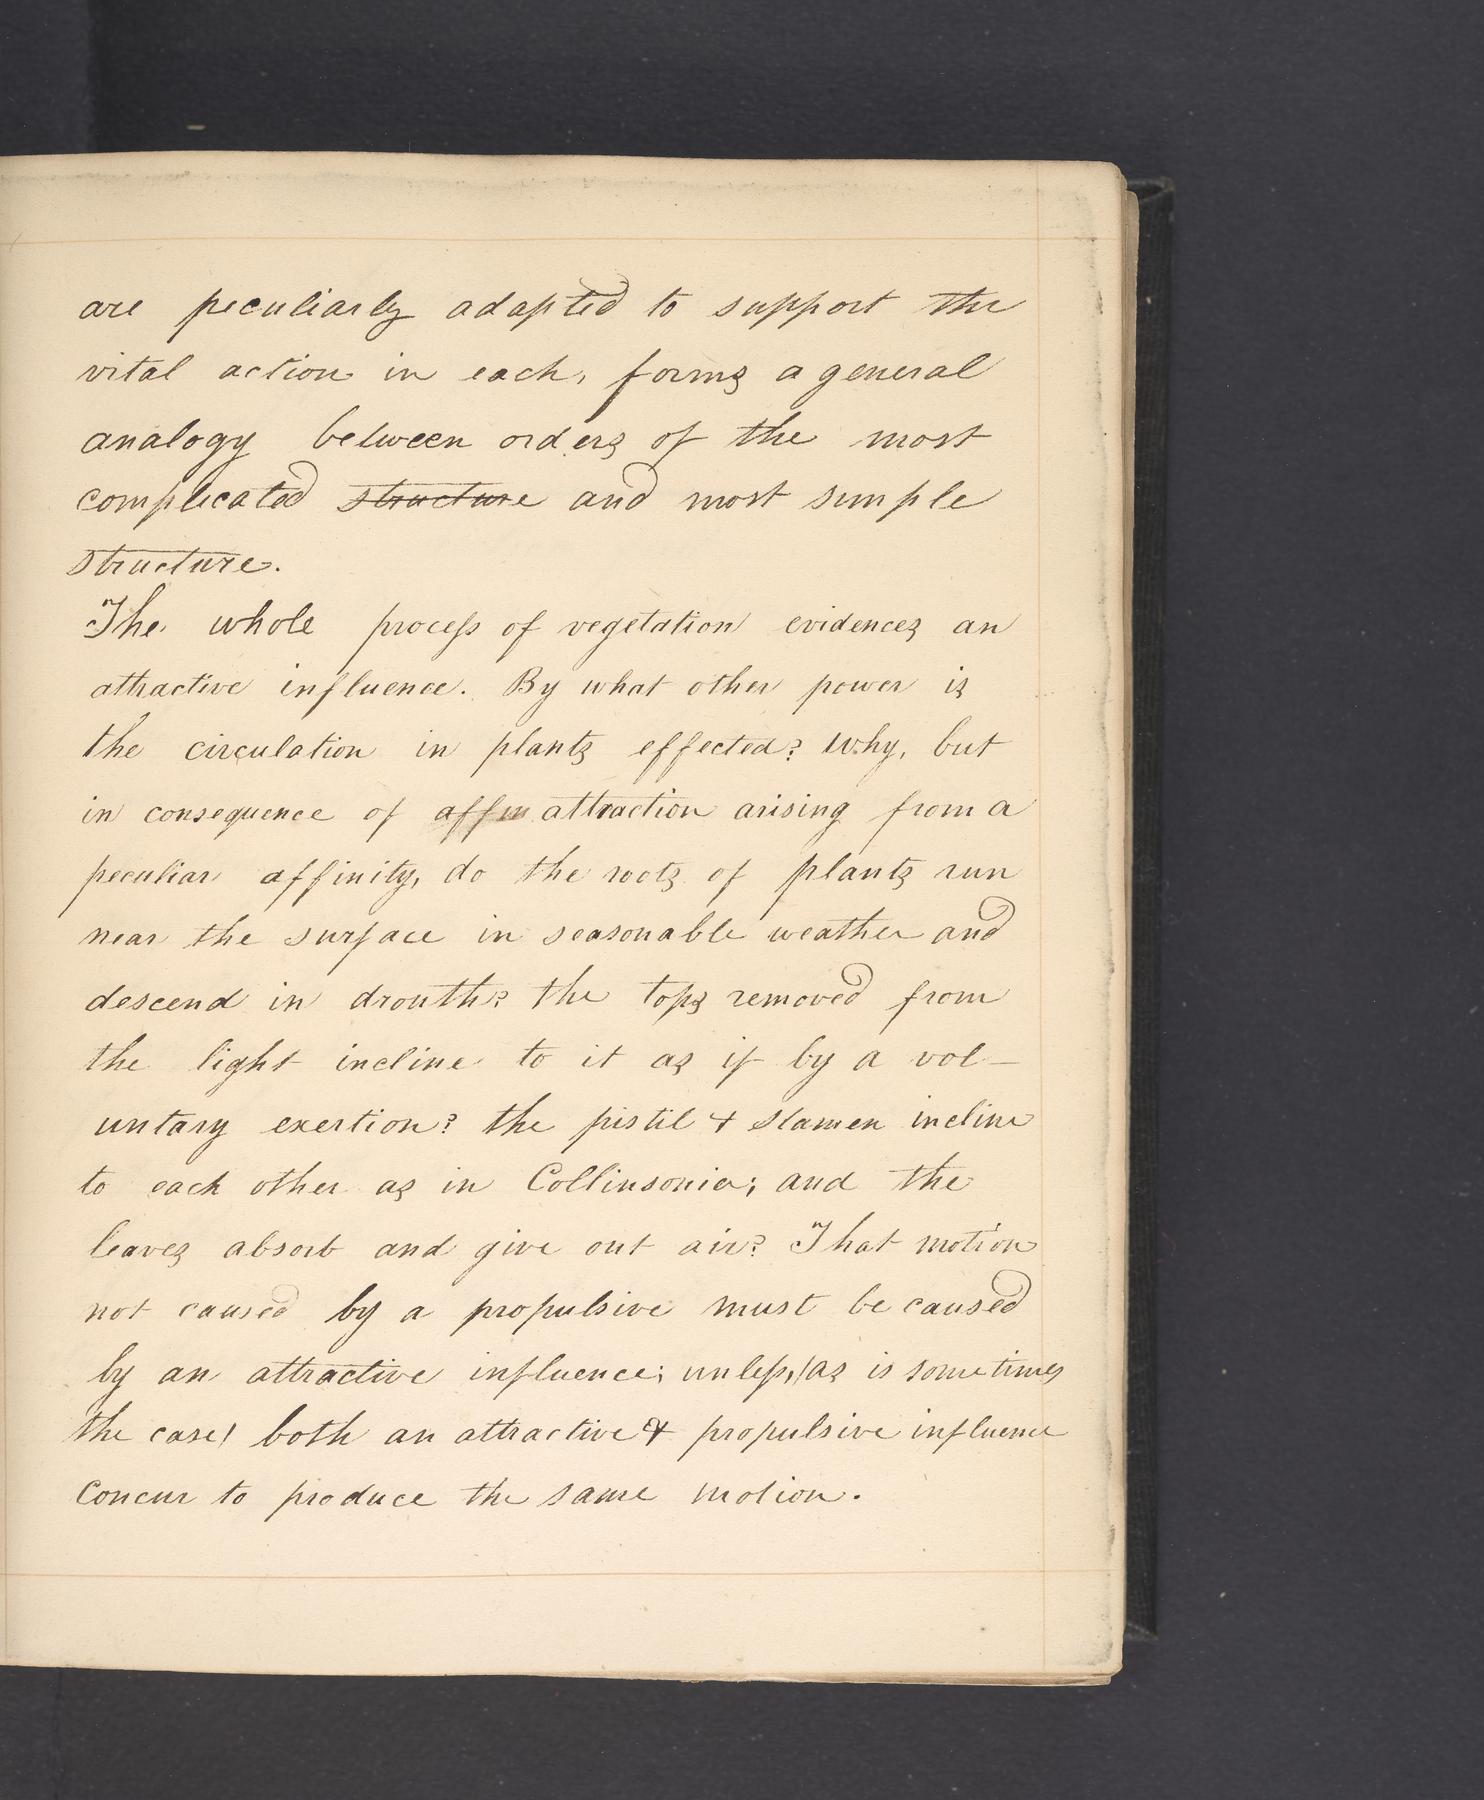 are peculiarly adapted to support the
vital action in each, forms a general
analogy between orders of the most
complicated structure and most simple
structure.
The whole process of vegetation evidences an
attractive influence. By what other power is
the circulation in plants effected? Why, but
in consequence of affin attraction arising from a
peculiar affinity, do the roots of plants run
near the surface in seasonable weather and
descend in drouth? the tops removed from
the light incline to it as if by a vol-
untary exertion? the pistil & stamen incline
to each other as in Collinsonia; and the
leaves absorb and give out air? That motion
not caused by a propulsive must be caused
by an attractive influence; unless, (as is sometimes
the case) both an attractive & propulsive influence
concur to produce the same motion.